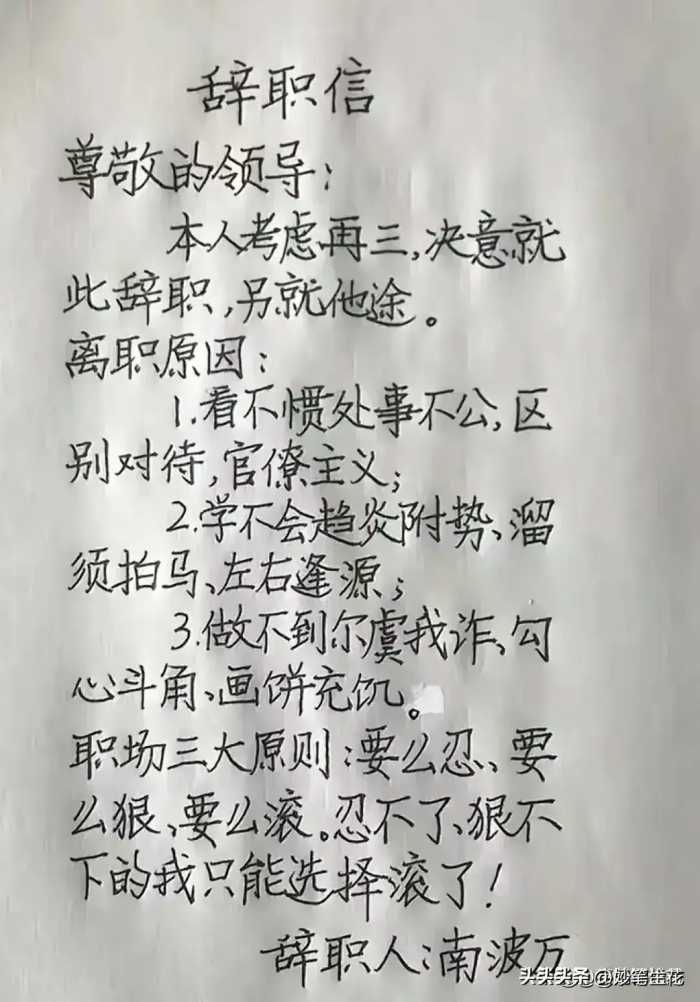 辞职信
尊敬的领导：
本人考虑再三，决意就
此辞职，另就他途。
离职原因：
1.看不惯处事不公，区
别对待，官僚主义；
2.学不会趋炎附势、溜
须拍马、左右逢源；
3.做不到尔虞我诈、勾
心斗角、画饼充饥。
职场三大原则：要么忍、要
么狠、要么滚。忍不了、狠不
下的我只能选择滚了！
辞职人：南波万
头条 @妙笔生花